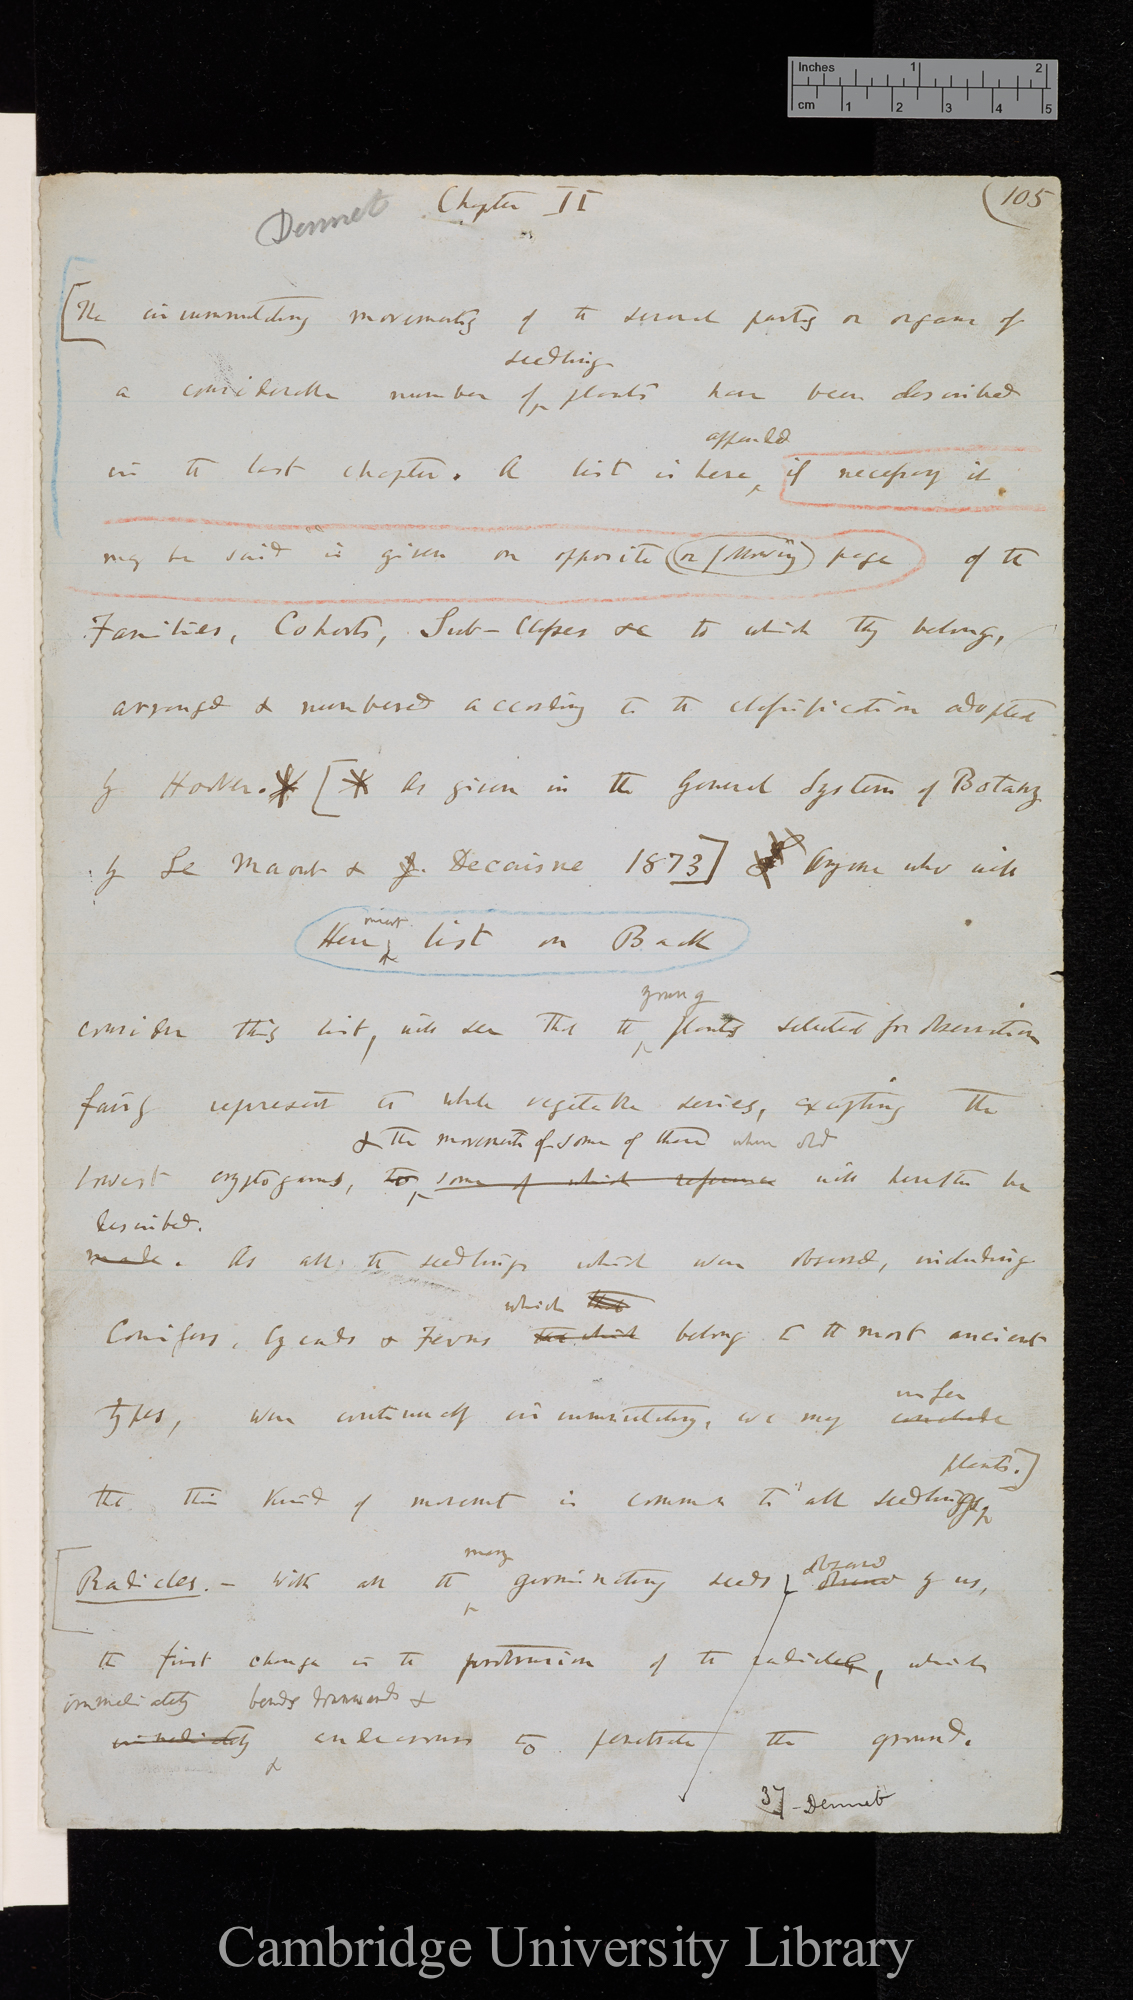 Inches 1 2
cm 1 2 3 4 5
Dennet Chapter II (105
[The circumnutating movements of the several parts or organs of
seedling
a considerable number of plants have been described
appended
in the last chapter. A list is here if necessary it
may be said is given on opposite (or following) page of the
Families, Cohorts, Sub-Classes &c to which they belong,
arranged & numbered according to the classification adopted
by Hooker.* [* As given in the General System of Botany
by Le Maout & J. Decaisne 1873] Anyone who will
Here insert list on Back
young
consider this list, will see that the plants selected for observation
fairly represent the whole vegetable series, excepting the
& the movements of some of these when old
lowest cryptogams, to some of which reference will hereafter be
described.
made. As all the seedlings which were observed, including
which that
Conifers, Cycads & Ferns which belong to the most ancient
infer
types, were continually circumnutating, we may conclude
plants.]
that this kind of movement is common to all seedlings
many observed
Radicles. — With all the germinating seeds observed by us,
the first change is the protrusion of the radicle, which
immediately bends downwards &
immediately endeavours to penetrate the ground.
37 - Dennet
Cambridge University Library